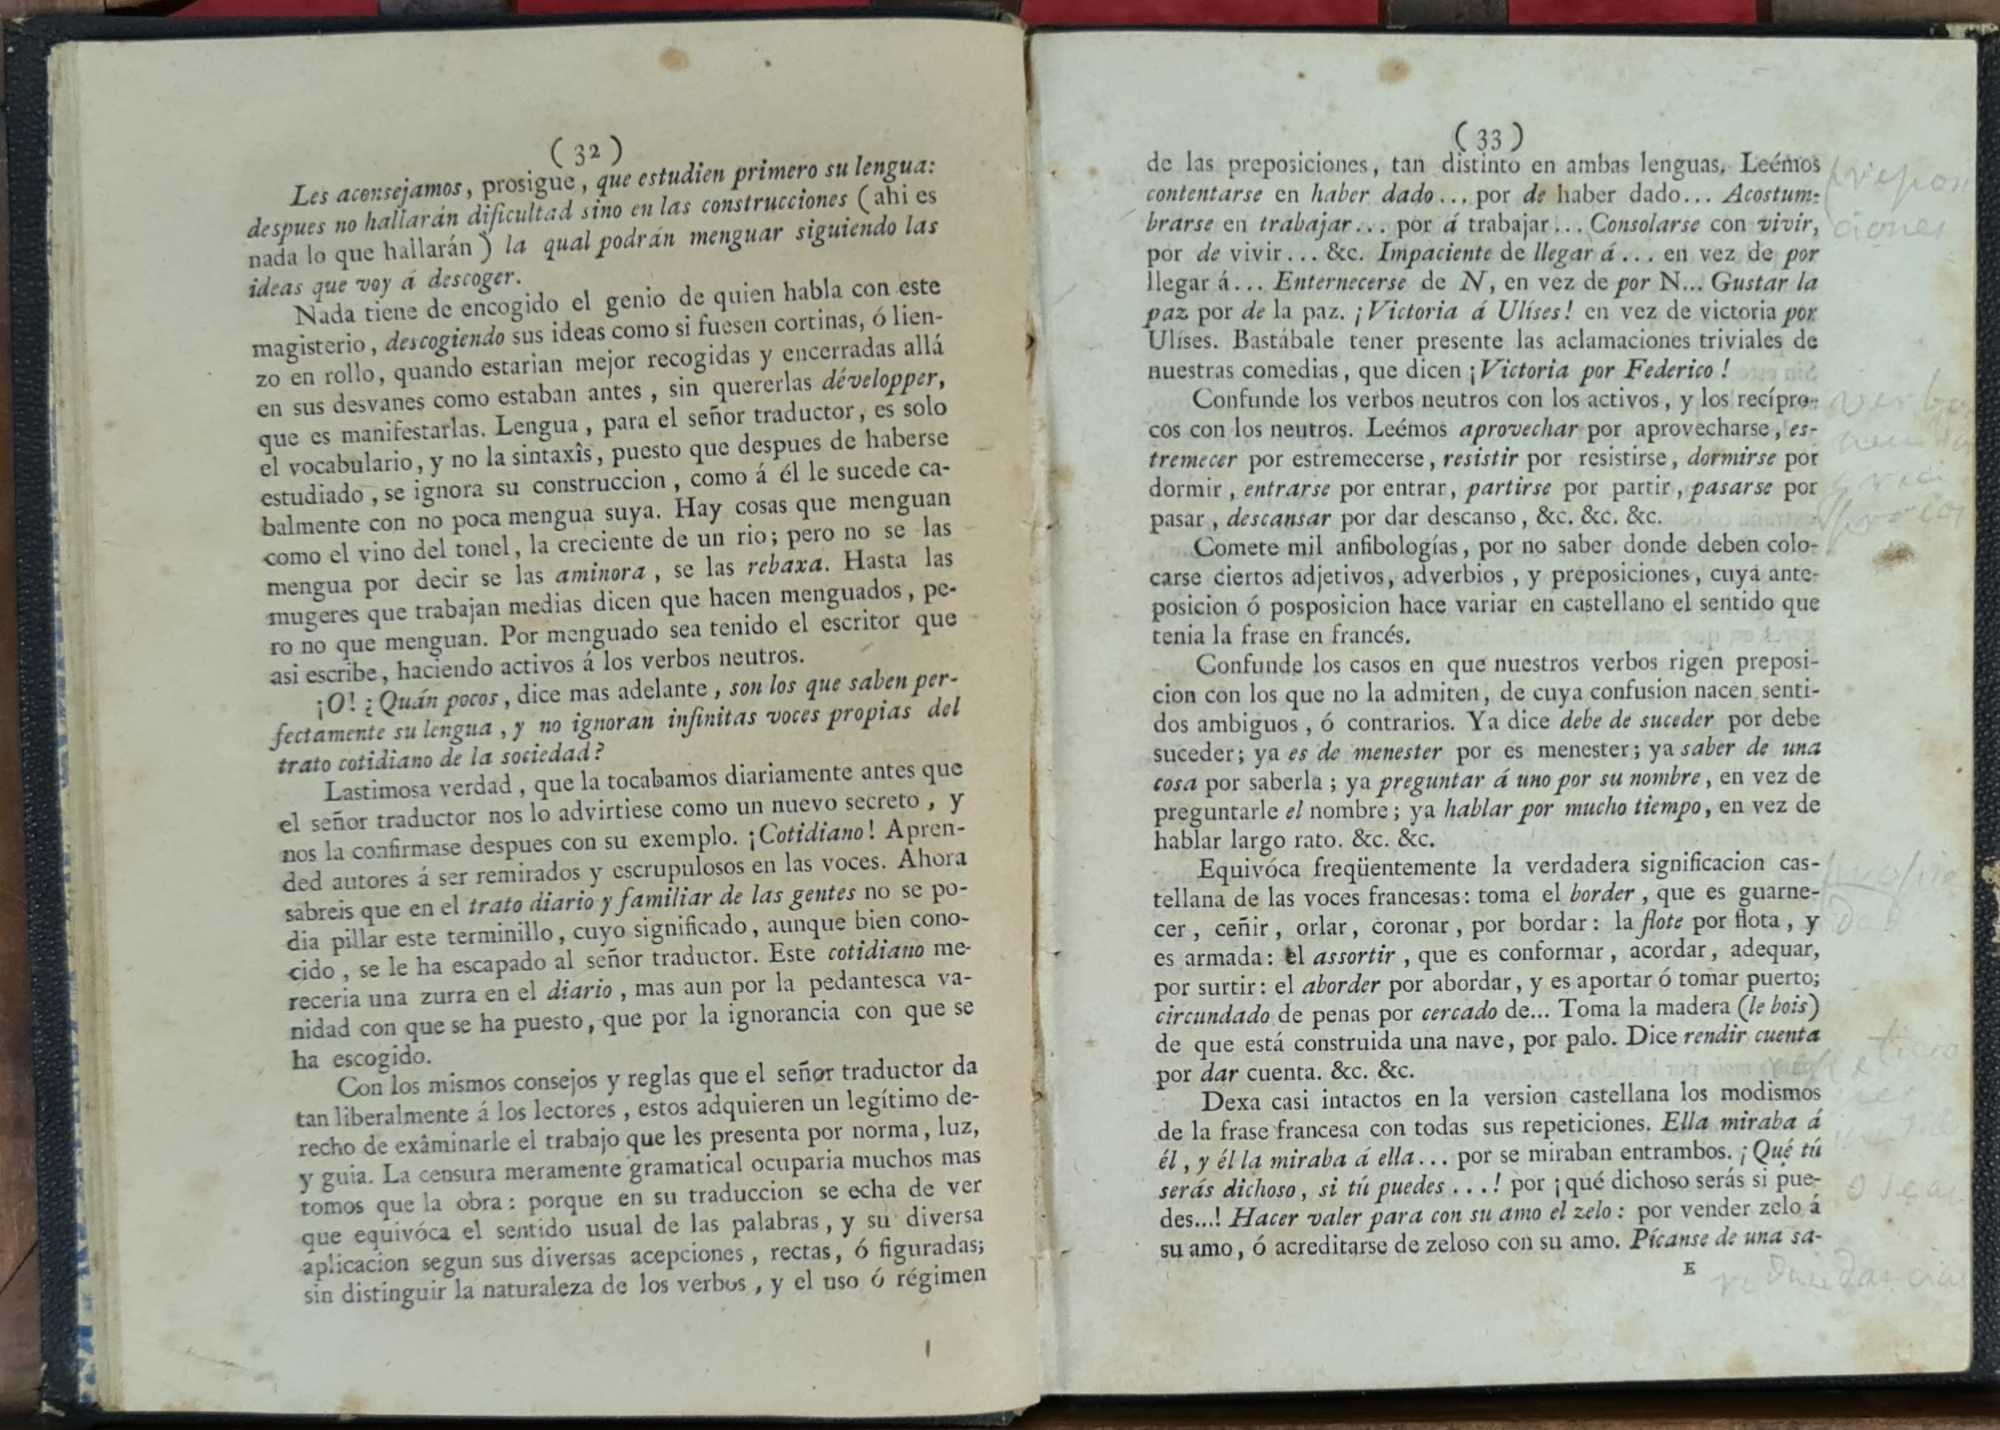 ( 32 )
Les aconsejamos, prosigue, que estudien primero su lengua:
despues no hallarán dificultad sino en las construcciones (ahi es
nada lo que hallarán) la qual podrán menguar siguiendo las
ideas que voy á descoger.
Nada tiene de encogido el genio de quien habla con este
magisterio, descogiendo sus ideas como si fuesen cortinas, ó lien-
zo en rollo, quando estarian mejor recogidas y encerradas allá
en sus desvanes como estaban antes, sin quererlas développer,
que es manifestarlas. Lengua, para el señor traductor, es solo
el vocabulario, y no la sintaxîs, puesto que despues de haberse
estudiado, se ignora su construccion, como á él le sucede ca-
balmente con no poca mengua suya. Hay cosas que menguan
como el vino del tonel, la creciente de un rio; pero no se las
mengua por decir se las aminora, se las rebaxa. Hasta las
mugeres que trabajan medias dicen que hacen menguados, pe-
ro no que menguan. Por menguado sea tenido el escritor que
asi escribe, haciendo activos á los verbos neutros.
¡O! ¿Quán pocos, dice mas adelante, son los que saben per-
fectamente su lengua, y no ignoran infinitas voces propias del
trato cotidiano de la sociedad?
Lastimosa verdad, que la tocabamos diariamente antes que
el señor traductor nos lo advirtiese como un nuevo secreto, y
nos la confirmase despues con su exemplo. ¡Cotidiano! Apren-
ded autores á ser remirados y escrupulosos en las voces. Ahora
sabreis que en el trato diario y familiar de las gentes no se po-
dia pillar este terminillo, cuyo significado, aunque bien cono-
cido, se le ha escapado al señor traductor. Este cotidiano me-
receria una zurra en el diario, mas aun por la pedantesca va-
nidad con que se ha puesto, que por la ignorancia con que se
ha escogido.
Con los mismos consejos y reglas que el señor traductor da
tan liberalmente á los lectores, estos adquieren un legítimo de-
recho de exâminarle el trabajo que les presenta por norma, luz,
y guia. La censura meramente gramatical ocuparia muchos mas
tomos que la obra: porque en su traduccion se echa de ver
que equivóca el sentido usual de las palabras, y su diversa
aplicacion segun sus diversas acepciones, rectas, ó figuradas;
sin distinguir la naturaleza de los verbos, y el uso ó régimen
( 33 )
de las preposiciones, tan distinto en ambas lenguas. Leémos
contentarse en haber dado... por de haber dado... Acostum-
brarse en trabajar... por á trabajar... Consolarse con vivir,
por de vivir... &c. Impaciente de llegar á... en vez de por
llegar á... Enternecerse de N, en vez de por N... Gustar la
paz por de la paz. ¡Victoria á Ulíses! en vez de victoria por
Ulíses. Bastábale tener presente las aclamaciones triviales de
nuestras comedias, que dicen ¡Victoria por Federico!
Confunde los verbos neutros con los activos, y los recípro-
cos con los neutros. Leémos aprovechar por aprovecharse, es-
tremecer por estremecerse, resistir por resistirse, dormirse por
dormir, entrarse por entrar, partirse por partir, pasarse por
pasar, descansar por dar descanso, &c. &c. &c.
Comete mil anfibologías, por no saber donde deben colo-
carse ciertos adjetivos, adverbios, y preposiciones, cuya ante-
posicion ó posposicion hace variar en castellano el sentido que
tenia la frase en francés.
Confunde los casos en que nuestros verbos rigen preposi-
cion con los que no la admiten, de cuya confusion nacen senti-
dos ambiguos, ó contrarios. Ya dice debe de suceder por debe
suceder; ya es de menester por es menester; ya saber de una
cosa por saberla; ya preguntar á uno por su nombre, en vez de
preguntarle el nombre; ya hablar por mucho tiempo, en vez de
hablar largo rato. &c. &c.
Equivóca freqüentemente la verdadera significacion cas-
tellana de las voces francesas: toma el border, que es guarne-
cer, ceñir, orlar, coronar, por bordar: la flote por flota, y
es armada: el assortir, que es conformar, acordar, adequar,
por surtir: el aborder por abordar, y es aportar ó tomar puerto;
circundado de penas por cercado de... Toma la madera (le bois)
de que está construida una nave, por palo. Dice rendir cuenta
por dar cuenta. &c. &c.
Dexa casi intactos en la version castellana los modismos
de la frase francesa con todas sus repeticiones. Ella miraba á
él, y él la miraba á ella... por se miraban entrambos. ¡Qué tú
serás dichoso, si tú puedes...! por ¡qué dichoso serás si pue-
des...! Hacer valer para con su amo el zelo: por vender zelo á
su amo, ó acreditarse de zeloso con su amo. Pícanse de una sa-
E
redundancias